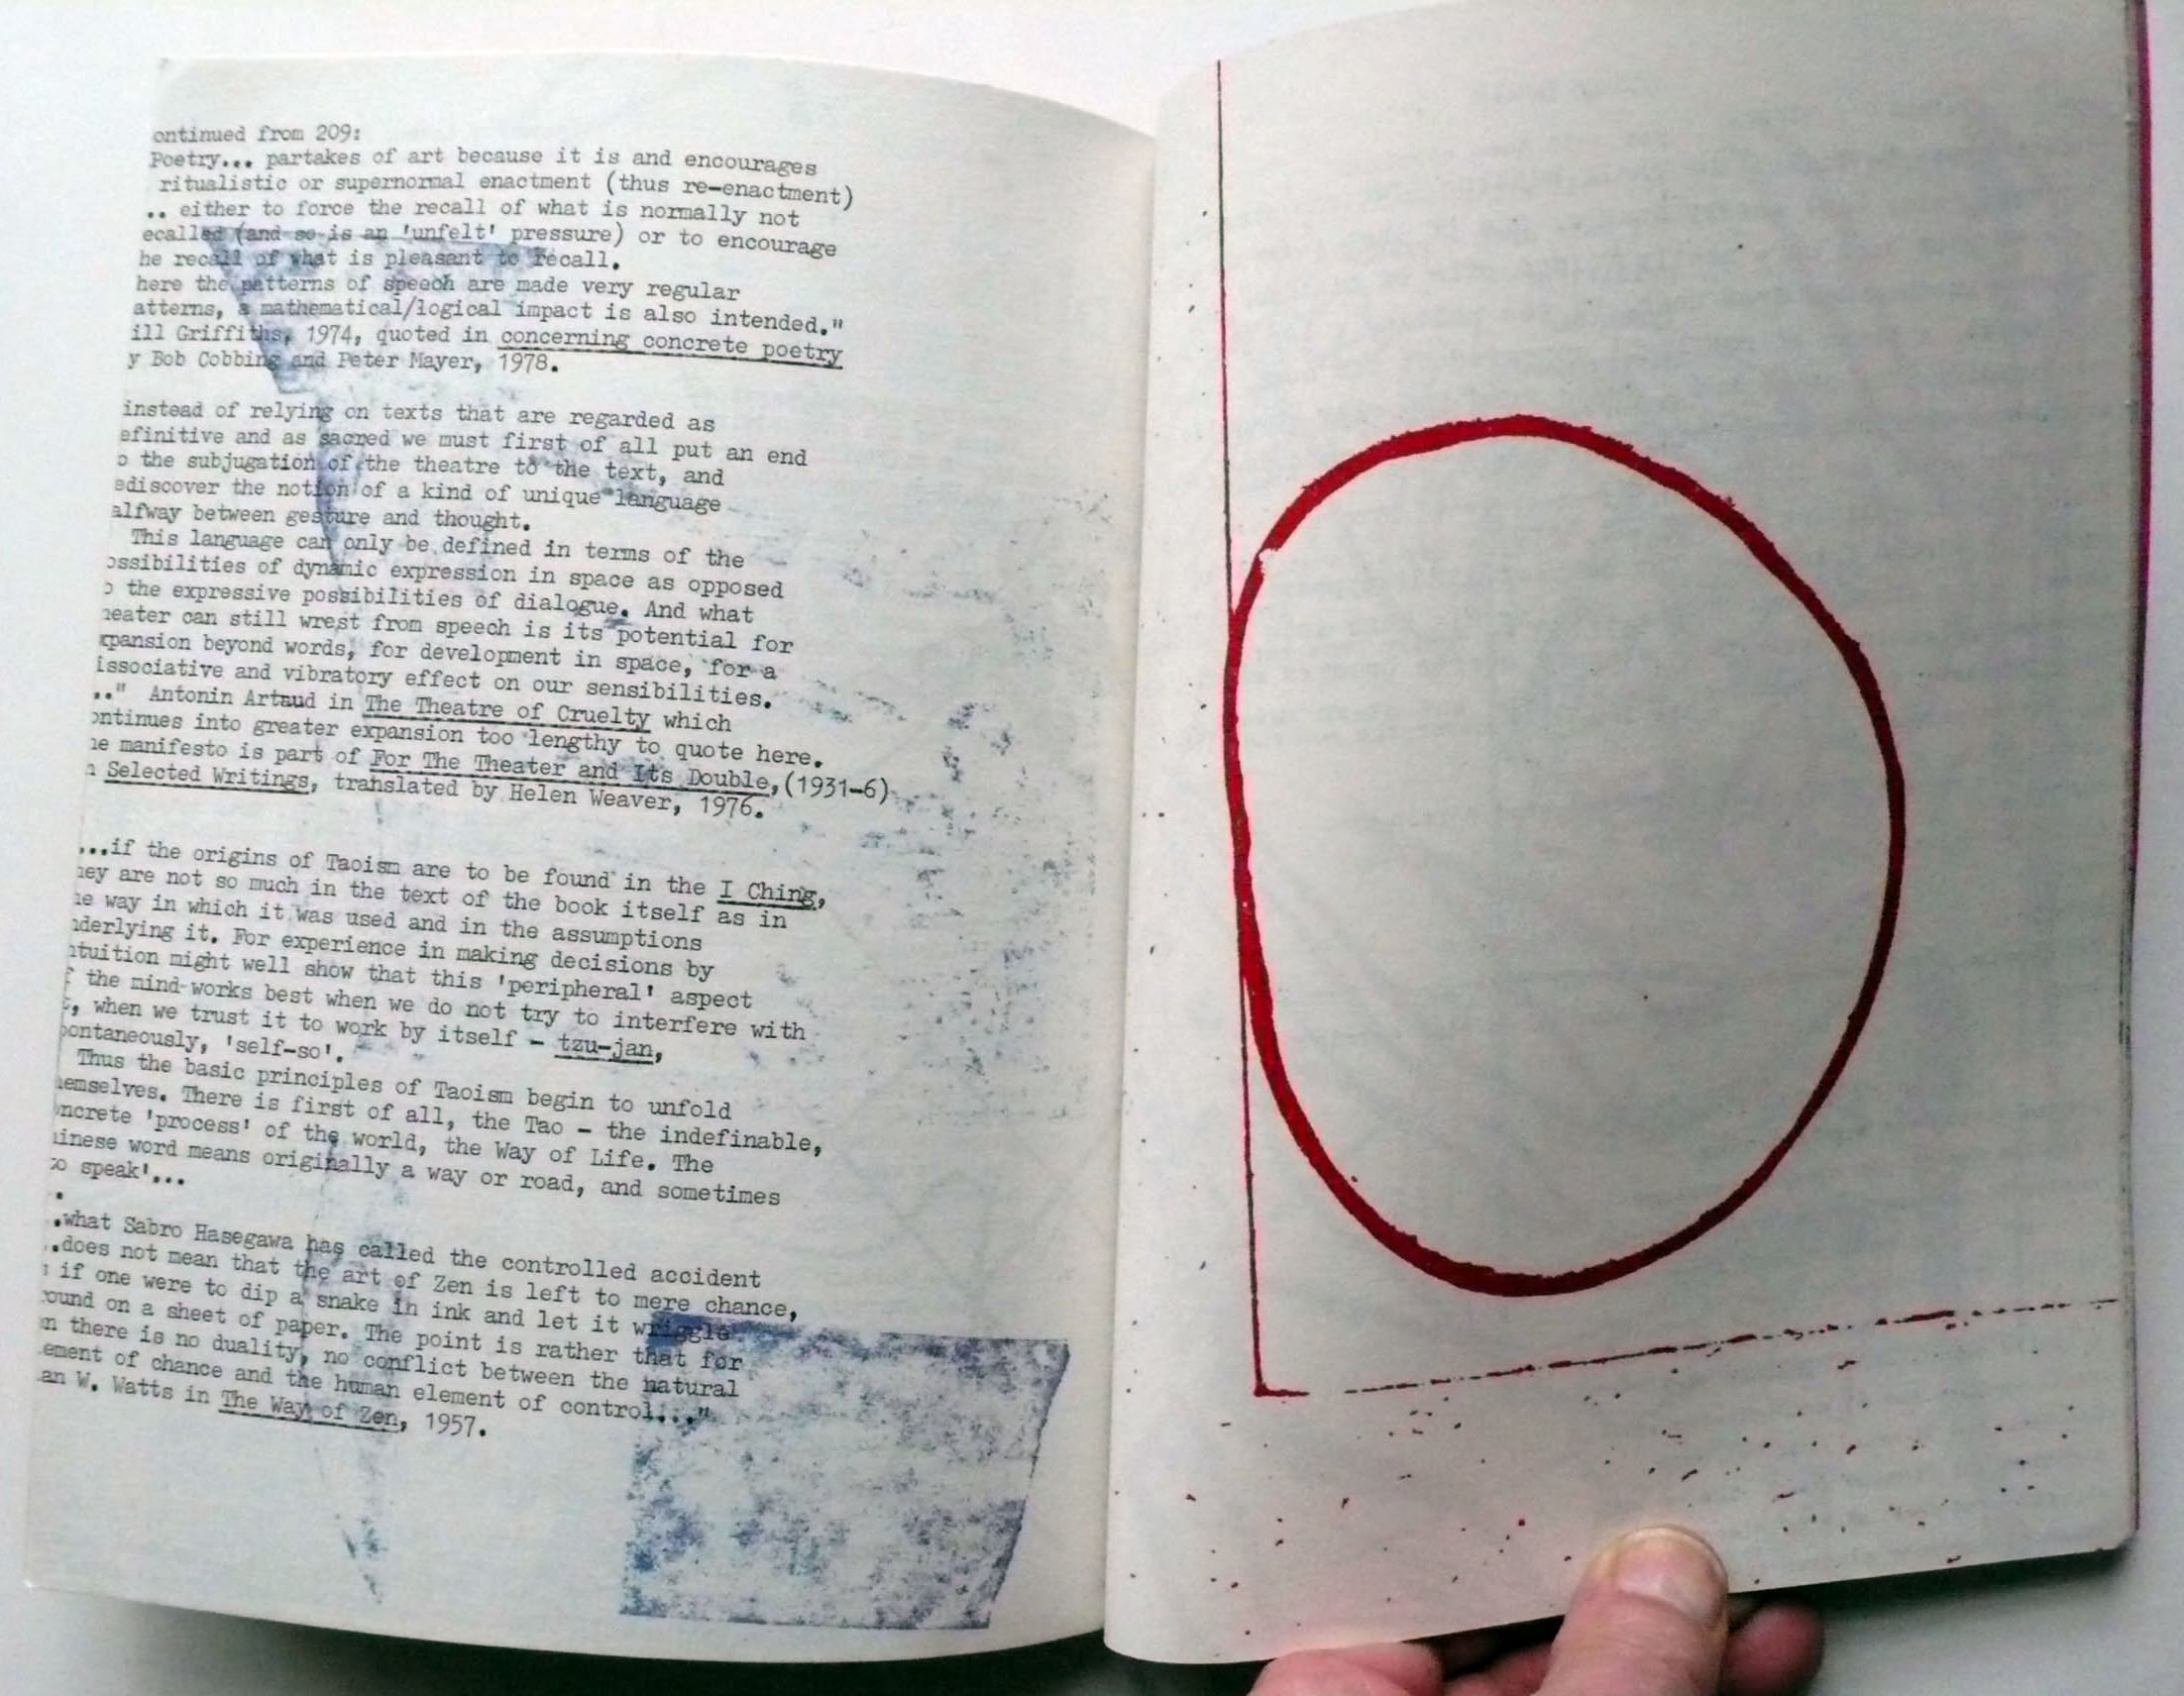 ontinued from 209:
Poetry... partakes of art because it is and encourages
ritualistic or supernormal enactment (thus re-enactment)
.. either to force the recall of what is normally not
ecalled (and so is an 'unfelt' pressure) or to encourage
he recall of what is pleasant to recall.
here the patterns of speech are made very regular
atterns, a mathematical/logical impact is also intended."
ill Griffiths, 1974, quoted in concerning concrete poetry
y Bob Cobbing and Peter Mayer, 1978.
instead of relying on texts that are regarded as
efinitive and as sacred we must first of all put an end
o the subjugation of the theatre to the text, and
ediscover the notion of a kind of unique language
alfway between gesture and thought.
This language can only be defined in terms of the
ossibilities of dynamic expression in space as opposed
o the expressive possibilities of dialogue. And what
heater can still wrest from speech is its potential for
xpansion beyond words, for development in space, for a
issociative and vibratory effect on our sensibilities.
.." Antonin Artaud in The Theatre of Cruelty which
ontinues into greater expansion too lengthy to quote here.
he manifesto is part of For The Theater and Its Double,(1931-6)
n Selected Writings, translated by Helen Weaver, 1976.
...if the origins of Taoism are to be found in the I Ching,
hey are not so much in the text of the book itself as in
he way in which it was used and in the assumptions
nderlying it. For experience in making decisions by
ntuition might well show that this 'peripheral' aspect
f the mind works best when we do not try to interfere with
t, when we trust it to work by itself - tzu-jan,
pontaneously, 'self-so'.
Thus the basic principles of Taoism begin to unfold
hemselves. There is first of all, the Tao - the indefinable,
oncrete 'process' of the world, the Way of Life. The
hinese word means originally a way or road, and sometimes
to speak'...
.
.what Sabro Hasegawa has called the controlled accident
..does not mean that the art of Zen is left to mere chance,
s if one were to dip a snake in ink and let it wriggle
round on a sheet of paper. The point is rather that for
en there is no duality, no conflict between the natural
ement of chance and the human element of control..."
an W. Watts in The Way of Zen, 1957.